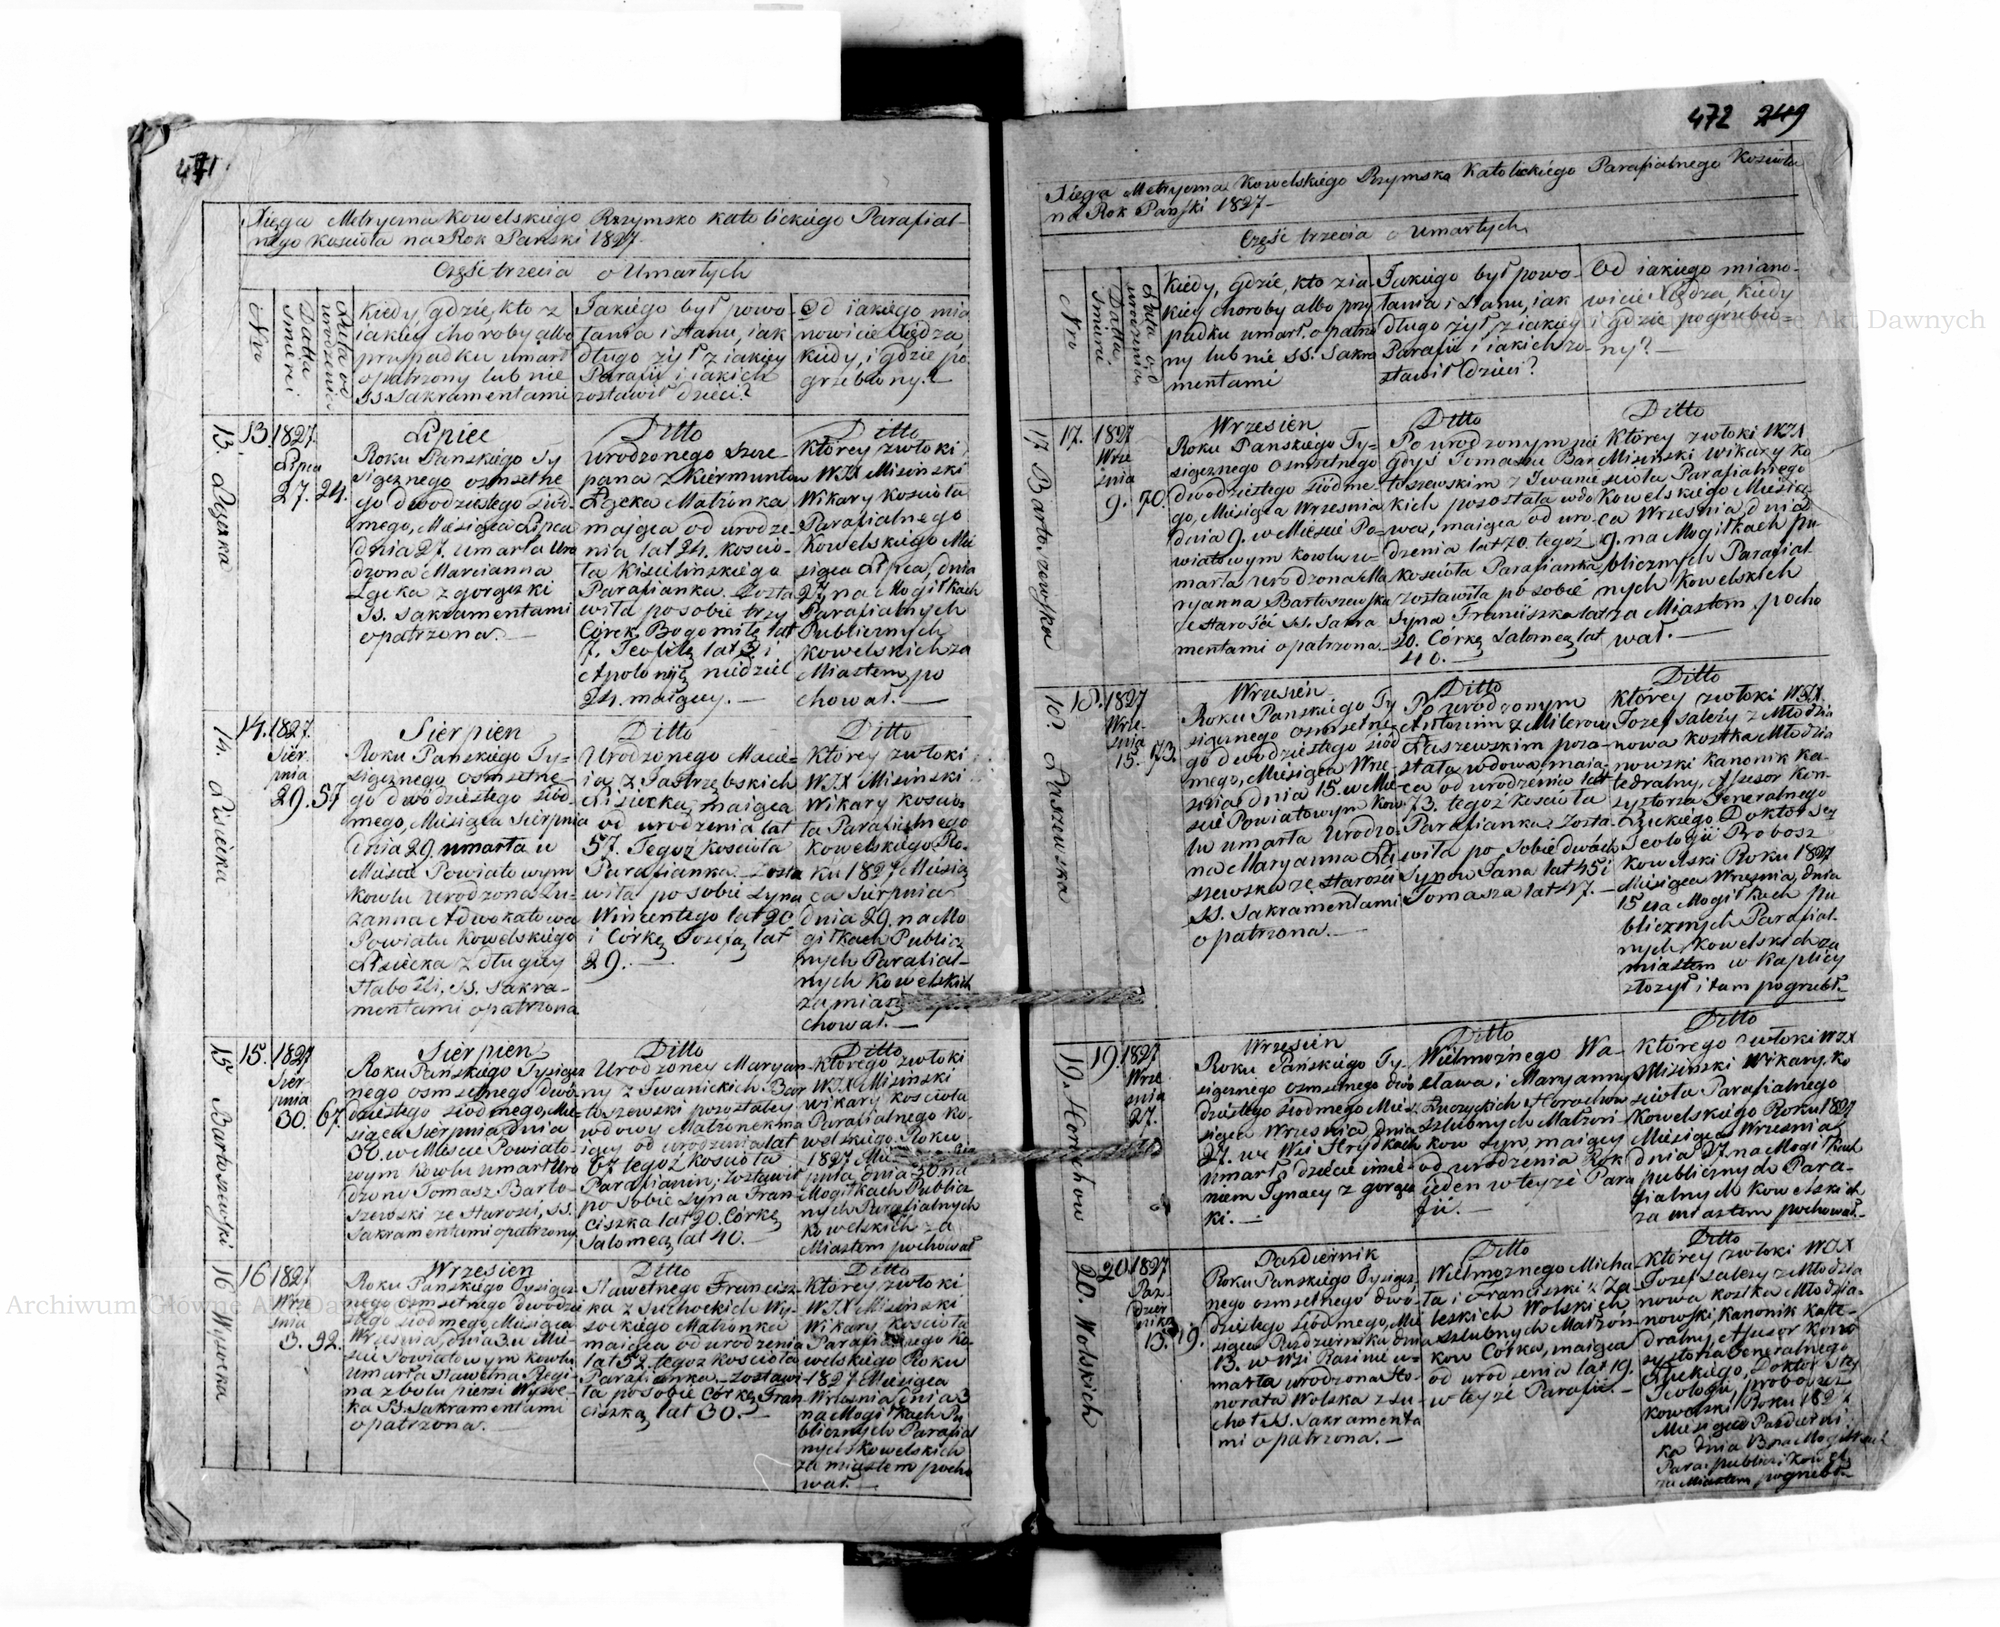 471
Xięga Metryczna Kowelskiego Rzymsko katolickiego Parafial-
nego Kościoła na Rok Pański 1827.
Część trzecia o Umarłych
Nro
Datta śmierci
Lata od urodzenia
Kiedy, gdzie, kto z
iakiey choroby albo
przypadku umarł
opatrzony lub nie
SS. Sakramentami
Jakiego był powo-
łania i stanu, iak
długo żył z iakiey
Parafii i iakich
zostawił dzieci?
Od iakiego mia
nowicie Xiędza,
kiedy, i gdzie po
grzebiony?
13. Łęcka
13.
1827.
Lipca
27.
24.
Lipiec
Roku Pańskiego Ty
siącznego ośmsetne
go dwódziestego siód-
mego, Miesiąca Lipca
dnia 27. umarła Uro
dzona Marcianna
Łęcka z gorączki
SS. Sakramentami
opatrzona.
Ditto
Urodzonego Szcze-
pana z Kiermuntów
Łęcka Małżonka
maiąca od urodze-
nia lat 24. kościo-
ła Kisielińskiego
Parafianka. Zosta
wiła po sobie trzy
Córek, Bogomiłę lat
7. Teofilę lat 3 i
Apolonię niedziel
24. maiącey.
Ditto
Którey zwłoki
WJX Misinski
Wikary Kościoła
Parafialnego
Kowelskiego Mie
siąca Lipca, dnia
27, na Mogiłkach
Parafialnych
Publicznych
Kowelskich za
Miastem po
chował.
14. Lisiecka
14.
1827.
Sier-
pnia
29.
57
Sierpień
Roku Pańskiego Ty-
siącznego ośmsetne-
go dwódziestego siód-
mego, Miesiąca Sierpnia
dnia 29. umarła w
Mieście Powiatowym
Kowlu Urodzona Zu-
zanna Adwokatowa
Powiatu Kowelskiego
Lisiecka z długiey
słabości, SS. Sakra-
mentami opatrzona
Ditto
Urodzonego Macie-
ia z Jastrzębskich
Lisiecka, maiąca
od urodzenia lat
57. Tegoż Kościoła
Parafianka. Zosta
wiła po sobie Syna
Wincentego lat 20
i Córkę Józefę lat
29.
Ditto
Którey zwłoki
WJX Misinski
Wikary kościo-
ła Parafialnego
Kowelskiego Ro-
ku 1827 Miesią
ca Sierpnia
dnia 29. na Mo
giłkach Publicz
nych Parafial-
nych Kowelskich
za miast
chował.
15 Bartoszewski
15.
1827
Sier-
pnia
30.
67.
Sierpień
Roku Pańskiego Tysiącz
nego ośmsetnego dwó-
dziestego siódmego, Mie-
siąca Sierpnia, dnia
30. w Mieście Powiato-
wym Kowlu umarł Uro
dzony Tomasz Barto-
szewski ze Starości, SS.
Sakramentami opatrzony
Ditto
Urodzoney Maryan-
ny z Iwanickich Bar
toszewski pozostałey
wdowy Małżonek ma
iący od urodzenia lat
67 tegoż kościoła
Parafianin; zostawił
po sobie Syna Fran-
ciszka lat 20. Córkę
Salomeę lat 40.
Ditto
Którego zwłoki
WJX Misinski
wikary kościoła
Parafialnego Ko-
welskiego Roku
1827 Mie
pnia, dnia 30 na
Mogiłkach Publicz
nych Parafialnych
Kowelskich za
Miastem pochował
16 Wysocka
16
1827
Wrze
śnia
3.
52.
Wrzesień
Roku Pańskiego Tysiącz-
nego ośmsetnego dwódzie
stego siódmego, Miesiąca
Września, dnia 3. w Mie-
ście Powiatowym Kowlu
umarła Sławetna Regi-
na z bolu piersi Wysoc-
ka SS. Sakramentami
opatrzona.
Ditto
Sławetnego Francisz
ka z Suchockich Wy-
sockiego Małżonka
maiąca od urodzenia
lat 52. tegoż kościoła
Parafianka. Zostawi-
ła po sobie Córkę Fran
ciszkę lat 30.
Ditto
Którey zwłoki
WJX Misinski
Wikary kościoła
Parafialnego Ko-
welskiego Roku
1827 Miesiąca
Września, dnia 3
na Mogiłkach Pu
blicznych Parafial
nych Kowelskich
za miastem pocho
wał.
472 249
Xięga Metryczna Kowelskiego Rzymsko Katolickiego Parafialnego Kościoła
na Rok Pański 1827
Część trzecia o Umarłych
Nro
Datta śmierci
Lata od urodzenia
Kiedy, gdzie, kto z ia
kiey choroby albo przy
padku umarł, opatrzo
ny lub nie SS. Sakra
mentami
Jakiego był powo-
łania i stanu, iak
długo żył, z iakiey
Parafii i iakich zo-
stawił dzieci?
Od iakiego miano-
wicie Xiędza, kiedy
i gdzie pogrzebio-
ny?
17 Bartoszewska
17.
1827
Wrze
śnia
9.
70.
Wrzesień
Roku Pańskiego Ty-
siącznego ośmsetnego
dwódziestego siódme
go, Miesiąca Września
dnia 9. w Mieście Po-
wiatowym Kowlu u-
marła urodzona Ma
ryanna Bartoszewska
ze starości SS. Sakra
mentami opatrzona
Ditto
Po urodzonym nie
gdyś Tomaszu Bar
toszewskim z Iwanic
kich pozostała wdo
wa, maiąca od uro-
dzenia lat 70. tegoż
Kościoła Parafianka,
zostawiła po sobie
Syna Franciszka lat
20. Córkę Salomeę lat
40.
Ditto
Którey zwłoki WJX
Misinski wikary ko
ścioła Parafialnego
Kowelskiego Miesią
ca Września, dnia
9. na Mogiłkach pu-
blicznych Parafial
nych Kowelskich
za Miastem pocho
wał.
18. Łuszewska
18.
1827
Wrze-
śnia
15.
73.
Wrzesień
Roku Pańskiego Ty
siącznego ośmsetne-
go dwódziestego siód
mego, Miesiąca Wrze-
śnia dnia 15. w Mie-
ście Powiatowym Kow-
lu umarła Urodzo-
na Maryanna Łu
szewska ze starości
SS. Sakramentami
opatrzona.
Ditto
Po urodzonym
Antonim z Milerow
Łuszewskim pozo-
stała wdowa, maią-
ca od urodzenia lat
73. tegoż kościoła
Parafianka. Zosta-
wiła po sobie dwóch
Synow Jana lat 45 i
Tomasza lat 47.
Ditto
Którey zwłoki WJX
Jozef Salezy z Młodzia
nowa Kostka Młodzia
nowski Kanonik Ka-
tedralny, Assesor Kon-
systorza Jeneralnego
Łuckiego Doktor Stey
Teologii Probosz
Kowelski Roku 1827
Miesiąca Września, dnia
15 na Mogiłkach pu
blicznych Parafial-
nych Kowelskich za
miastem w Kaplicy
złożył i tam pogrzebł.
19. Horochow
19.
1827
Wrze
śnia
27.
Wrzesień
Roku Pańskiego Ty-
siącznego ośmsetnego dwó
dziestego siódmego Mie-
siąca Września dnia
27. we Wsi Hrydkach
umarło dziecie imie-
niem Ignacy z gorącz
ki.
Ditto
Wielmożnego Wa-
cława i Maryanny
Zuczyckich Horochow
szlubnych Małżon-
kow Syn, maiący
od urodzenia Rok
ieden w teyże Para
fii.
Ditto
Którego zwłoki WJX
Misinski Wikary Ko
ścioła Parafialnego
Kowelskiego Roku 1827
Miesiąca Września
dnia 27. na Mogiłkach
publicznych Para-
fialnych Kowelskich
za miastem pochował.
20. Wolskich
20
1827
Paź-
dzier
nika
13.
19.
Październik
Roku Pańskiego Tysiącz-
nego ośmsetnego dwó-
dziestego siódmego, Mie
siąca Października dnia
13. w Wsi u-
marła urodzona Ho-
norata Wolska z su-
chot SS. Sakramenta
mi opatrzona.
Ditto
Wielmożnego Micha
ła i Franciszki z Za-
leskich Wolskich
szlubnych Małżon
kow Córka, maiąca
od urodzenia lat 19.
w teyże Parafii.
Ditto
Którey zwłoki WJX
Jozef Salezy z Młodzia
nowa Kostka Młodzia-
nowski, Kanonik Kate-
dralny, Assesor Kon-
systorza Generalnego
Łuckiego, Doktor Stey
Teologii, probosz
Kowelski Roku 1827
Miesiąca Październi
ka dnia 13 na Mogiłkach
Para: publicz: Kowels:
za Miastem pogrzebł.
Archiwum Główne Akt Dawnych
Archiwum Główne Akt Dawnych